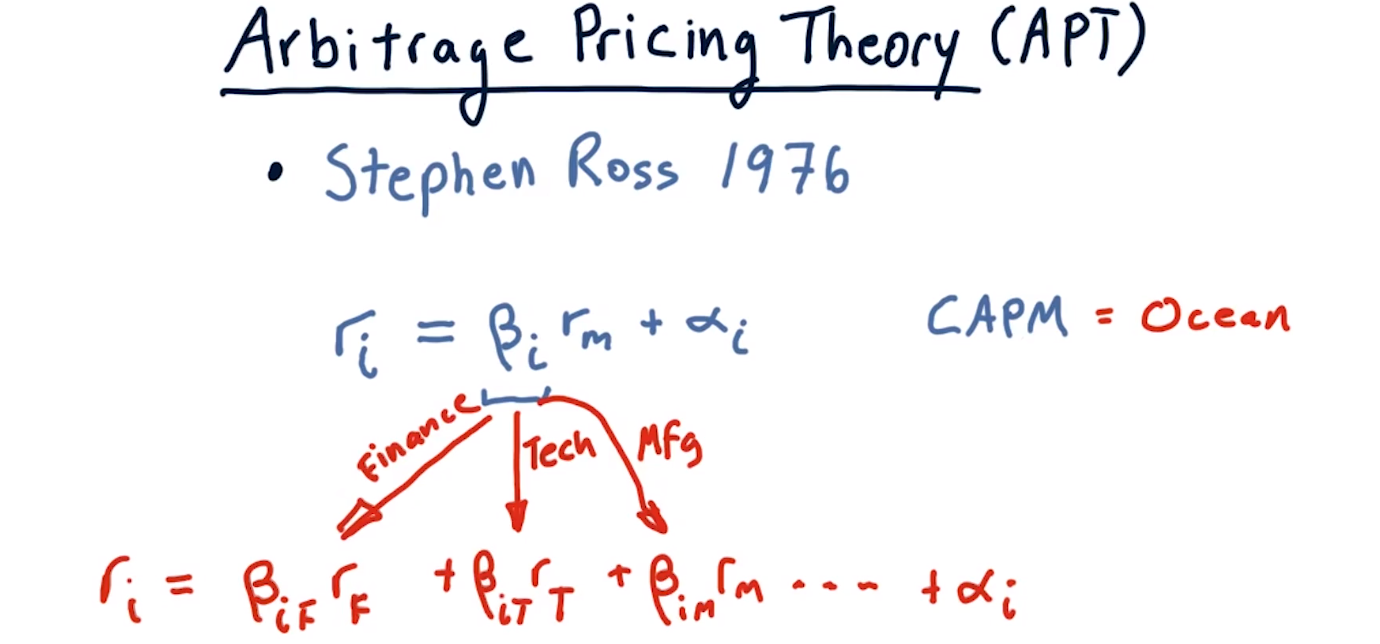 Arbitrage Pricing Theory (APT)
• Stephen Ross 1976
rᵢ = βᵢ rₘ + αᵢ
CAPM = Ocean
Finance
Tech
Mfg
rᵢ = β_iF r_F + β_iT r_T + β_im r_m ---- + αᵢ